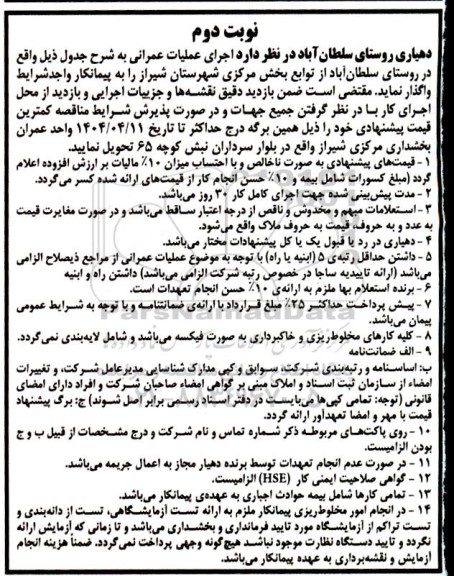 نوبت دوم
دهیاری روستای سلطان‌آباد در نظر دارد اجرای عملیات عمرانی به شرح جدول ذیل واقع
در روستای سلطان‌آباد از توابع بخش مرکزی شهرستان شیراز را به پیمانکار واجدشرایط
واگذار نماید. مقتضی است ضمن بازدید دقیق نقشه‌ها و جزییات اجرایی و بازدید از محل
اجرای کار با در نظر گرفتن جمیع جهات و در صورت پذیرش شرایط مناقصه کمترین
قیمت پیشنهادی خود را ذیل همین برگه درج حداکثر تا تاریخ ۱۴۰۴/۰۴/۱۱ واحد عمران
بخشداری مرکزی شیراز واقع در بلوار سرداران نبش کوچه ۶۵ تحویل نمایید.
۱ - قیمت‌های پیشنهادی به صورت ناخالص و با احتساب میزان ۱۰٪ مالیات بر ارزش افزوده اعلام
گردد (مبلغ کسورات شامل بیمه و ۱۰٪ حسن انجام کار از قیمت‌های ارائه شده کسر می‌گردد.
۲ - مدت پیش‌بینی شده جهت اجرای کامل کار ۳۰ روز می‌باشد.
۳ - استعلامات مبهم و مخدوش و ناقص از درجه اعتبار ساقط می‌باشد و در صورت مغایرت قیمت
به عدد و به حروف، قیمت به حروف ملاک واقع می‌شود.
۴ - دهیاری در رد یا قبول یک یا کل پیشنهادات مختار می‌باشد.
۵ - داشتن حداقل رتبه‌ی ۵ (ابنیه یا راه) با توجه به موضوع عملیات عمرانی از مراجع ذیصلاح الزامی
می‌باشد (ارائه تاییدیه ساجا در خصوص رتبه شرکت الزامی می‌باشد) داشتن راه و ابنیه
۶ - برنده استعلام بها ملزم به ارائه‌ی ۱۰٪ حسن انجام تعهدات است.
۷ - پیش پرداخت حداکثر ۲۵٪ مبلغ قرارداد با ارائه‌ی ضمانتنامه و با توجه به شرایط عمومی
پیمان می‌باشد.
۸ - کلیه کارهای مخلوط‌ریزی و خاکبرداری به صورت فیکسه می‌باشد و شامل لایه‌بندی نمی‌گردد.
۹ - الف ضمانت‌نامه
ب: اساسنامه و رتبه‌بندی شرکت، سوابق و کپی مدارک شناسایی مدیرعامل شرکت، و تغییرات
امضاء از سازمان ثبت اسناد و املاک مبنی بر گواهی امضاء صاحبان شرکت و افراد دارای امضای
قانونی (توجه: تمامی کپی‌ها می‌بایست در دفتر اسناد رسمی برابر اصل شوند) ج: برگ پیشنهاد
قیمت با مهر و امضا تعهدآور ارائه گردد.
۱۰ - روی پاکت‌های مربوطه ذکر شماره تماس و نام شرکت و درج مشخصات از قبیل ب و ج
بودن الزامیست.
۱۱ - در صورت عدم انجام تعهدات توسط برنده دهیار مجاز به اعمال جریمه می‌باشد.
۱۲ - گواهی صلاحیت ایمنی کار (HSE) الزامیست.
۱۳ - تمامی کارها شامل بیمه حوادث اجباری به عهده‌ی پیمانکار می‌باشد.
۱۴ - در انجام امور مخلوط‌ریزی پیمانکار ملزم به ارائه تست آزمایشگاهی، تست از دانه‌بندی و
تست تراکم از آزمایشگاه مورد تایید فرمانداری و بخشداری می‌باشد و تا زمانی که آزمایش ارائه
نگردد و تایید دستگاه نظارت موجود نباشد هیچ‌گونه وجهی پرداخت نمی‌گردد. ضمناً هزینه انجام
آزمایش و نقشه‌برداری به عهده پیمانکار می‌باشد.